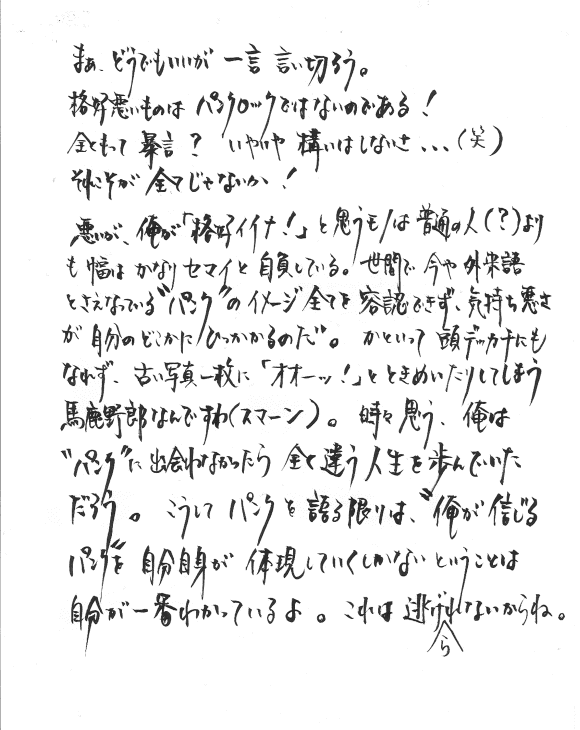 まぁ、どうでもいいが 一言 言い切ろう。
格好悪いものは パンクロックではないのである！
全くもって 暴言？ いやいや 構いはしないさ...(笑)
それこそが 全てじゃないか！
悪いが、俺が「格好イイナ！」と思うモノは 普通の人(？)より
も 幅は かなり セマイ と 自負している。世間で 今や 外来語
とさえなっている"パンク"のイメージ全てを 容認できず、気持ち悪さ
が 自分のどこかに ひっかかるのだ"。かといって 頭デッカチにも
なれず、古い写真一枚に「オオーッ！」とときめいたりしてしまう
馬鹿野郎なんですわ(スマーン)。時々思う、俺は
"パンク"に出会わなかったら 全く違う人生を歩んでいた
だろう。こうして パンクを 語る限りは、"俺が信じる
パンク"を 自分自身が 体現していくしかない ということは
自分が一番わかっているよ。これは 逃げれないからね。
ら